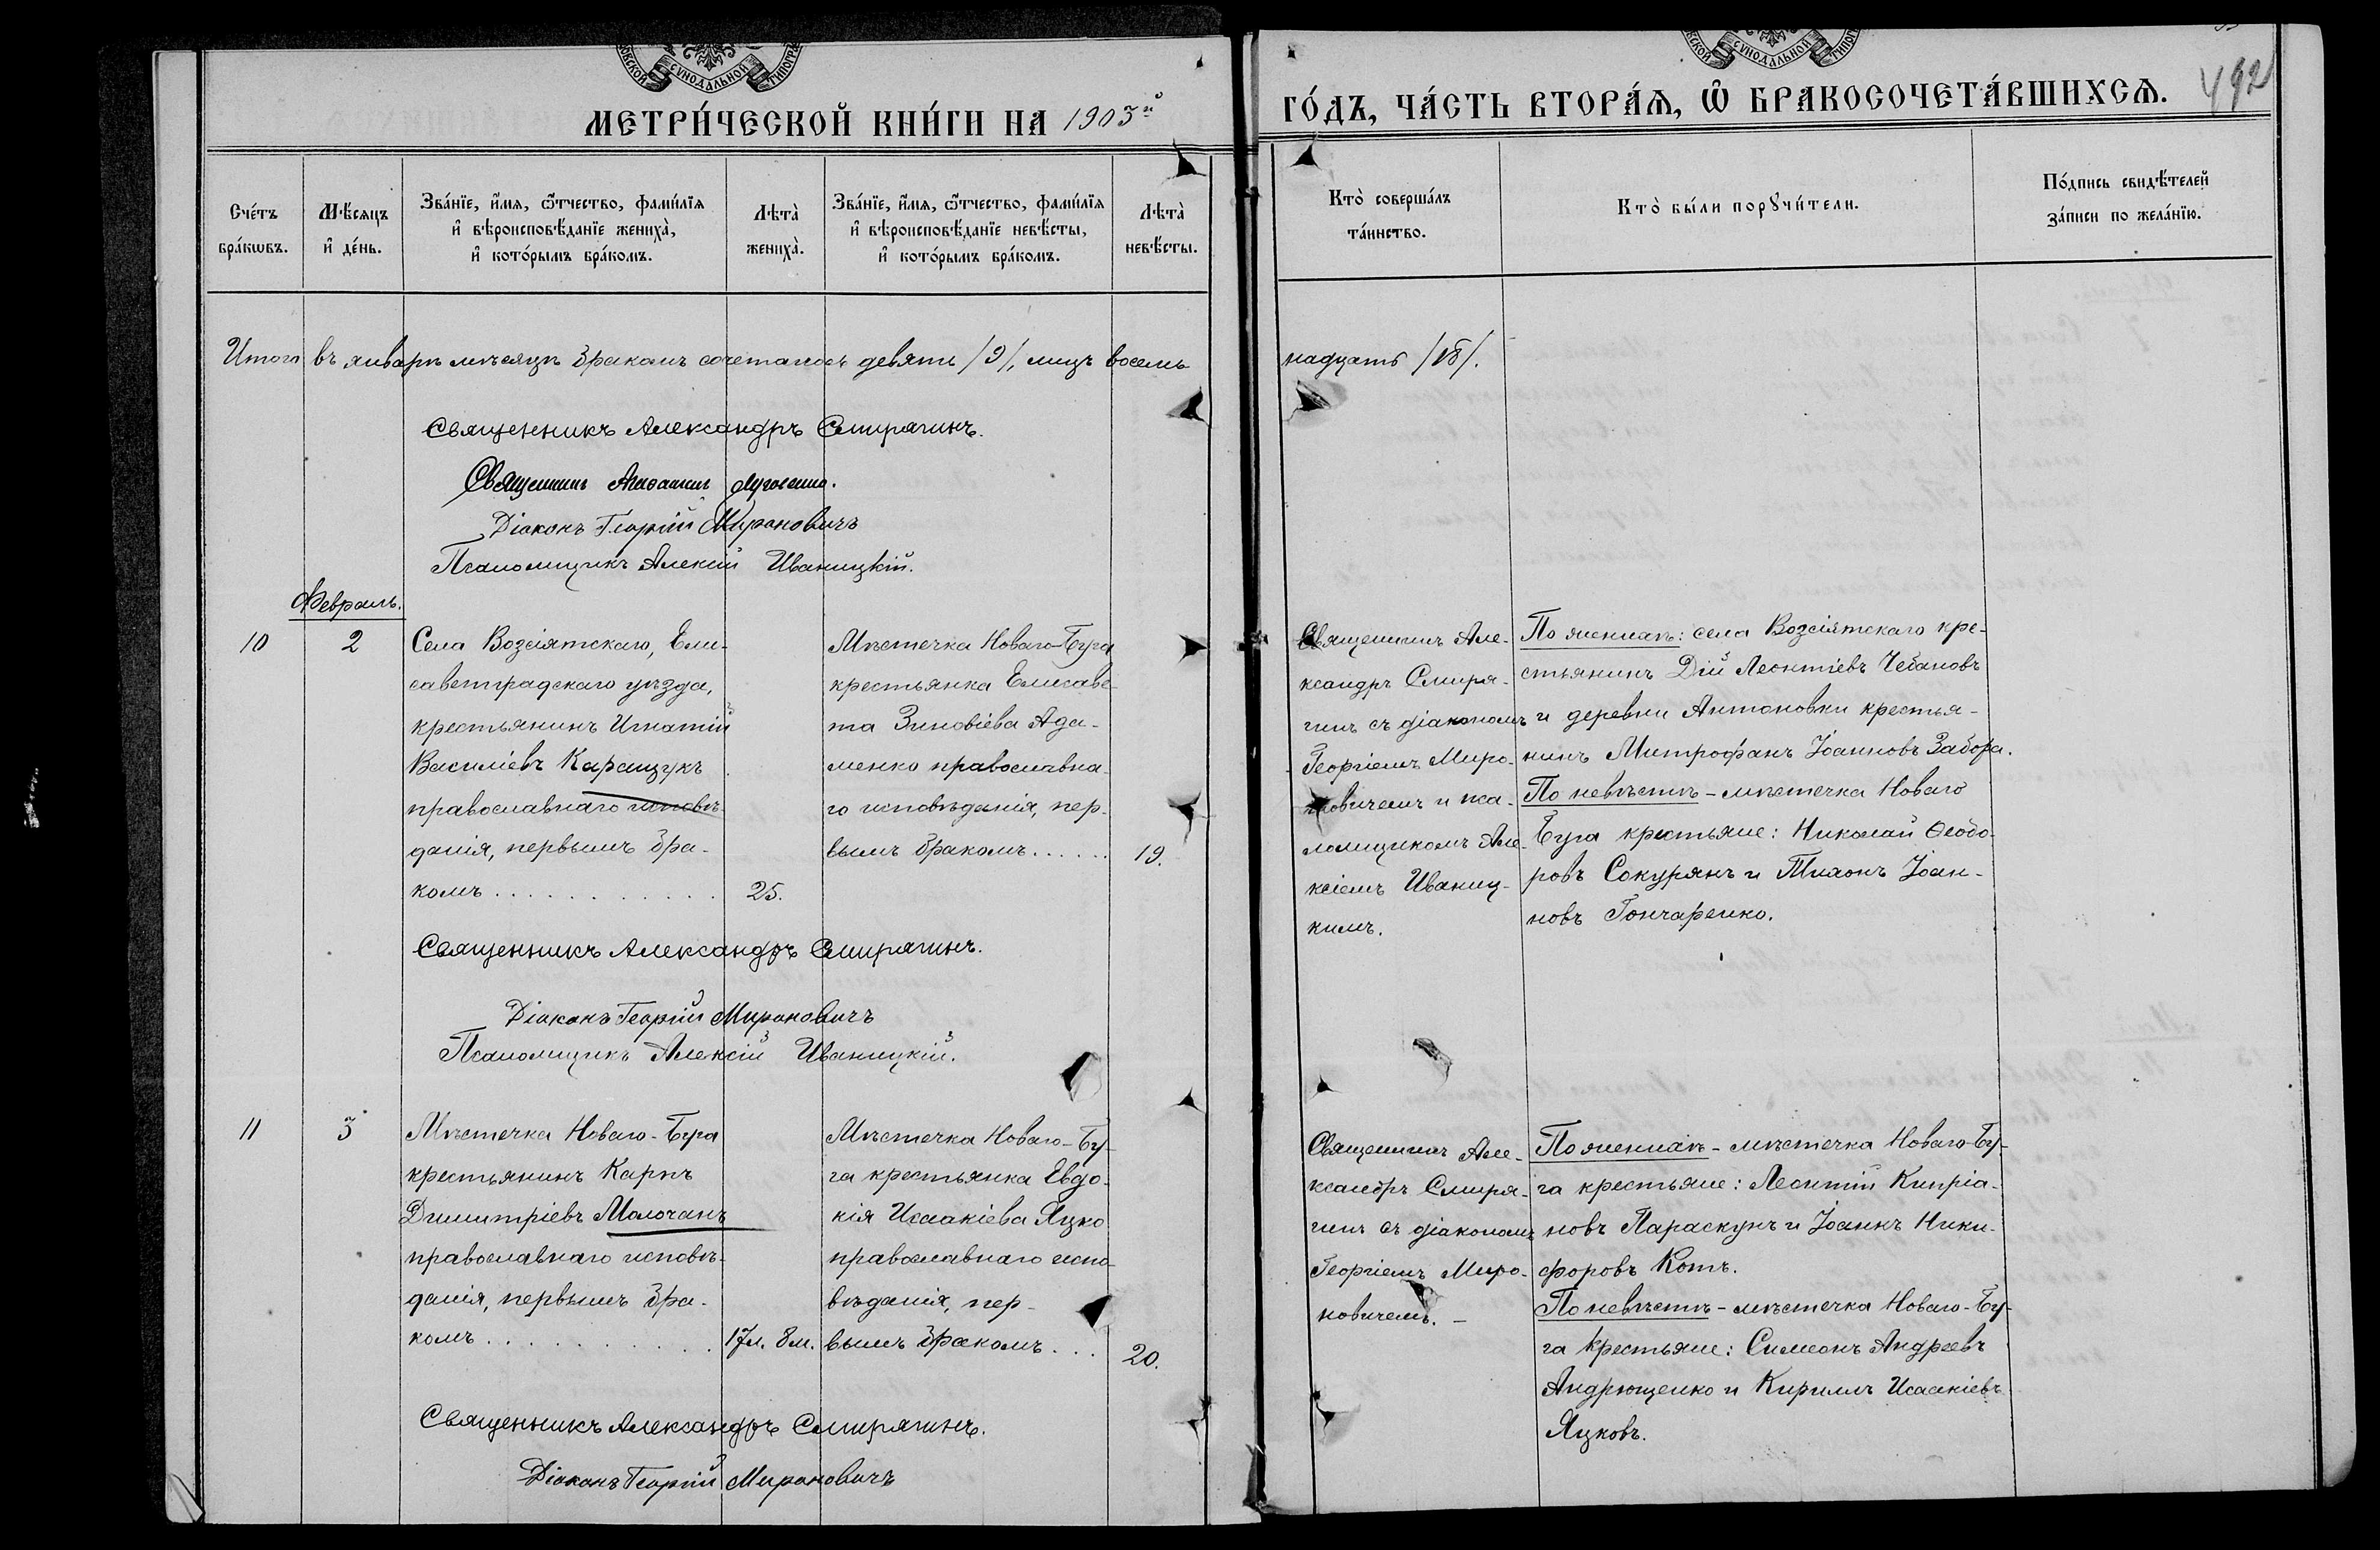 МЕТРИ́ЧЕСКОЙ КНИ́ГИ НА 1903й
ГО́ДЪ, ЧА́СТЬ ВТОРА́Ѧ, Ѿ БРАКОСОЧЕТА́ВШИХСѦ.
492
Сче́тъ бра́кωвъ.
Мѣ́сяцъ и҆ де́нь.
Зва́нїе, и҆́мя, ѻ҆́тчество, фами́лїя и҆ вѣроисповѣ́данїе жениха̀, и҆ кото́рымъ бра́комъ.
Лѣта̀ жениха̀.
Зва́нїе, и҆́мя, ѻ҆́тчество, фами́лїя и҆ вѣроисповѣ́данїе невѣ́сты, и҆ кото́рымъ бра́комъ.
Лѣта̀ невѣ́сты.
Кто̀ соверша́лъ та́инство.
Кто̀ бы́ли порꙋчи́тели.
По́дпись свидѣ́телей за́писи по жела́нїю.
Итого въ январѣ мѣсяцѣ бракомъ сочеталось девять /9/, лицъ восемь
надцать /18/.
Священникъ Александръ Смирягинъ.
Священникъ
Діаконъ Георгій Мироновичъ
Псаломщикъ Алексій Иваницкій.
Февраль.
10
2
Села Возсіятскаго, Ели-
саветградскаго уѣзда,
крестьянинъ Игнатій
Василіевъ Каращукъ
православнаго исповѣ-
данія, первымъ бра-
комъ............
25.
Мѣстечка Новаго-Буга
крестьянка Елисаве-
та Зиновіева Ада-
менко православна-
го исповѣданія, пер-
вымъ бракомъ......
19.
Священникъ Але-
ксандръ Смиря-
гинъ съ діакономъ
Георгіемъ Миро-
новичемъ и пса-
ломщикомъ Але-
ксіемъ Иваниц-
кимъ.
По женихѣ: села Возсіятскаго кре-
стьянинъ Дій Леонтіевъ Чебановъ
и деревни Антоновки крестья-
нинъ Митрофанъ Іоанновъ Забора.
По невѣстѣ - мѣстечка Новаго
Буга крестьяне: Николай Ѳеодо-
ровъ Сокурянъ и Тихонъ Іоан-
новъ Гончаренко.
Священникъ Александръ Смирягинъ.
Діаконъ Георгій Мироновичъ
Псаломщикъ Алексій Иваницкій.
11
3
Мѣстечка Новаго-Буга
крестьянинъ Карпъ
Димитріевъ Молочанъ
православнаго исповѣ-
данія, первымъ бра-
комъ...........
17л. 8м.
Мѣстечка Новаго-Бу-
га крестьянка Евдо-
кія Исаакіева Яцко
православнаго испо-
вѣданія, пер-
вымъ бракомъ...
20.
Священникъ Але-
ксандръ Смиря-
гинъ съ діакономъ
Георгіемъ Миро-
новичемъ. -
По женихѣ - мѣстечка Новаго-Бу-
га крестьяне: Леонтій Кипріа-
новъ Параскунъ и Іоаннъ Ники-
форовъ Котъ.
По невѣстѣ - мѣстечка Новаго-Бу-
га крестьяне: Симеонъ Андреевъ
Андрющенко и Кириллъ Исаакіевъ
Яцковъ.
Священникъ Александръ Смирягинъ.
Діаконъ Георгій Мироновичъ